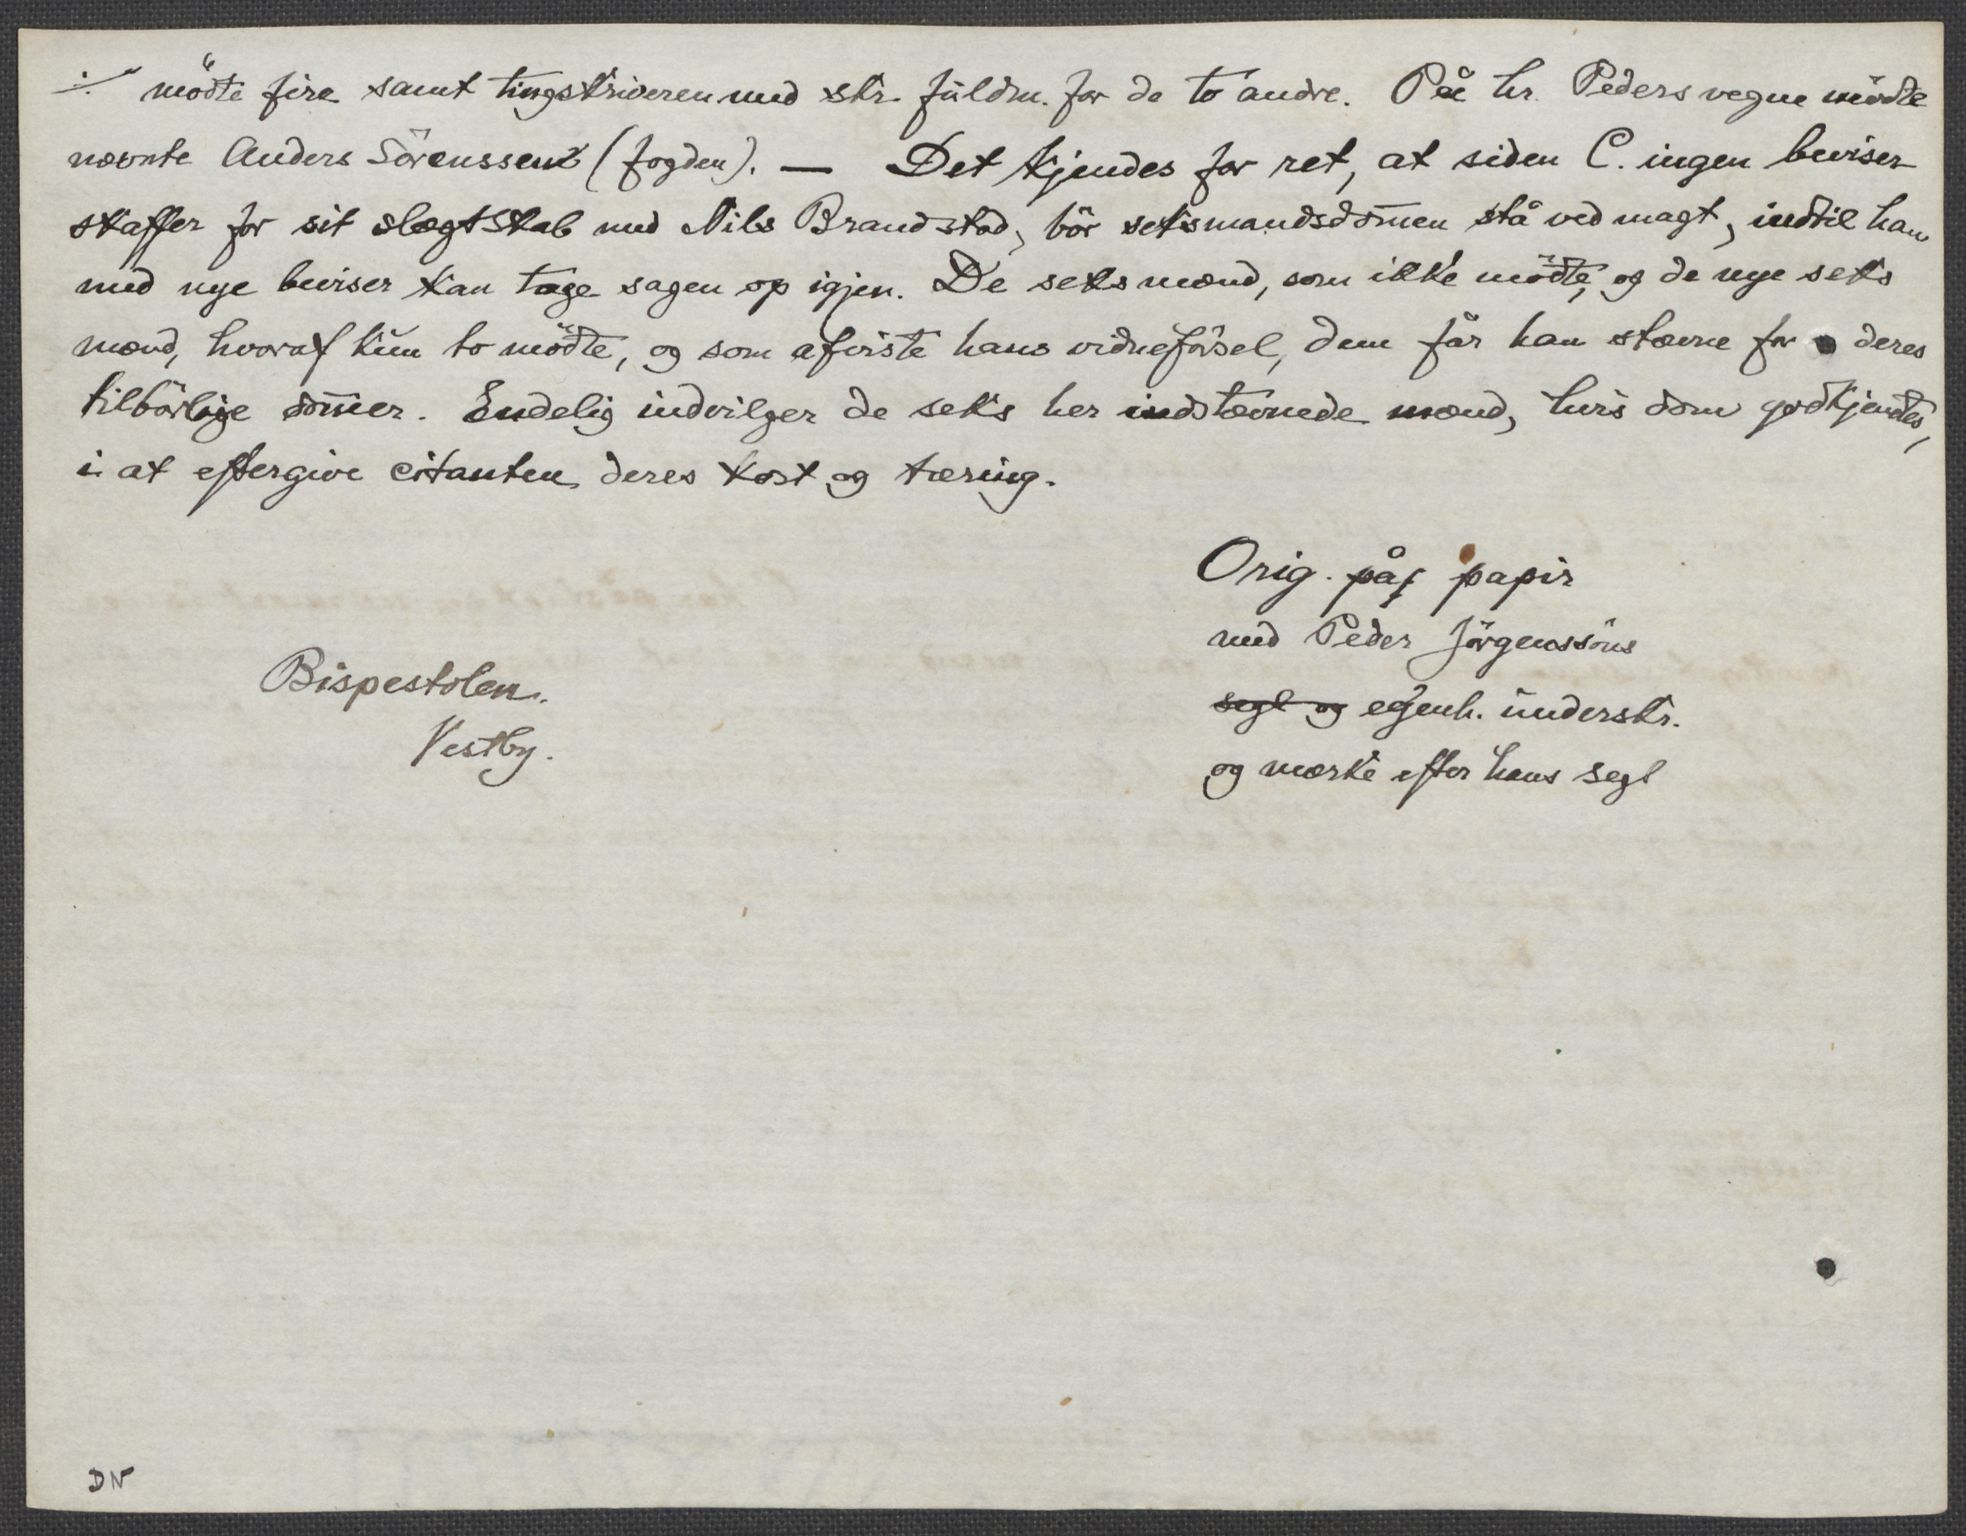 ./. mödte fire samt tingskriveren med skr. fuldm. for de to andre. På hr. Peders vegne mödte
nævnte Anders Sörenssen (fogden). — Det kjendes for ret, at siden C. ingen beviser
skaffer for sit slægtskab med Nils Brandstad, bör seksmandsdom̅en stå ved magt, indtil han
med nye beviser kan tage sagen op igjen. De seks mænd, som ikke mödte, og de nye seks
mænd, hvoraf kun to mödte, og som afviste hans vidneförsel, dem får han stævne for deres
tilbörlige dom̅er. Endelig indvilger de seks her indstævnede mænd, hvis dom godkjendtes,
i at eftergive citanten deres kost og tæring.
Orig. på papir
med Peder Jörgenssöns
segl og egenh. underskr.
og mærke efter hans segl
Bispestolen.
Vestby.
DN